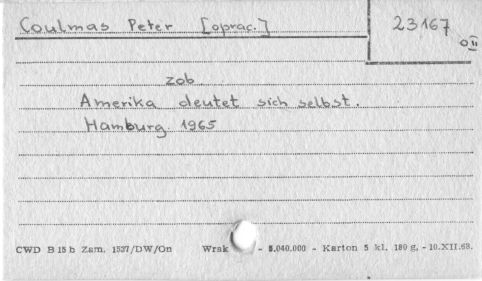 Coulmas Peter [oprac.] 23167
OII
zob
Amerika deutet sich selbst.
Hamburg 1965
CWD B 15 b Zam. 1537/DW/On Wrak - 5.040.000 - Karton 5 kl. 180 g. - 10.XII.68.